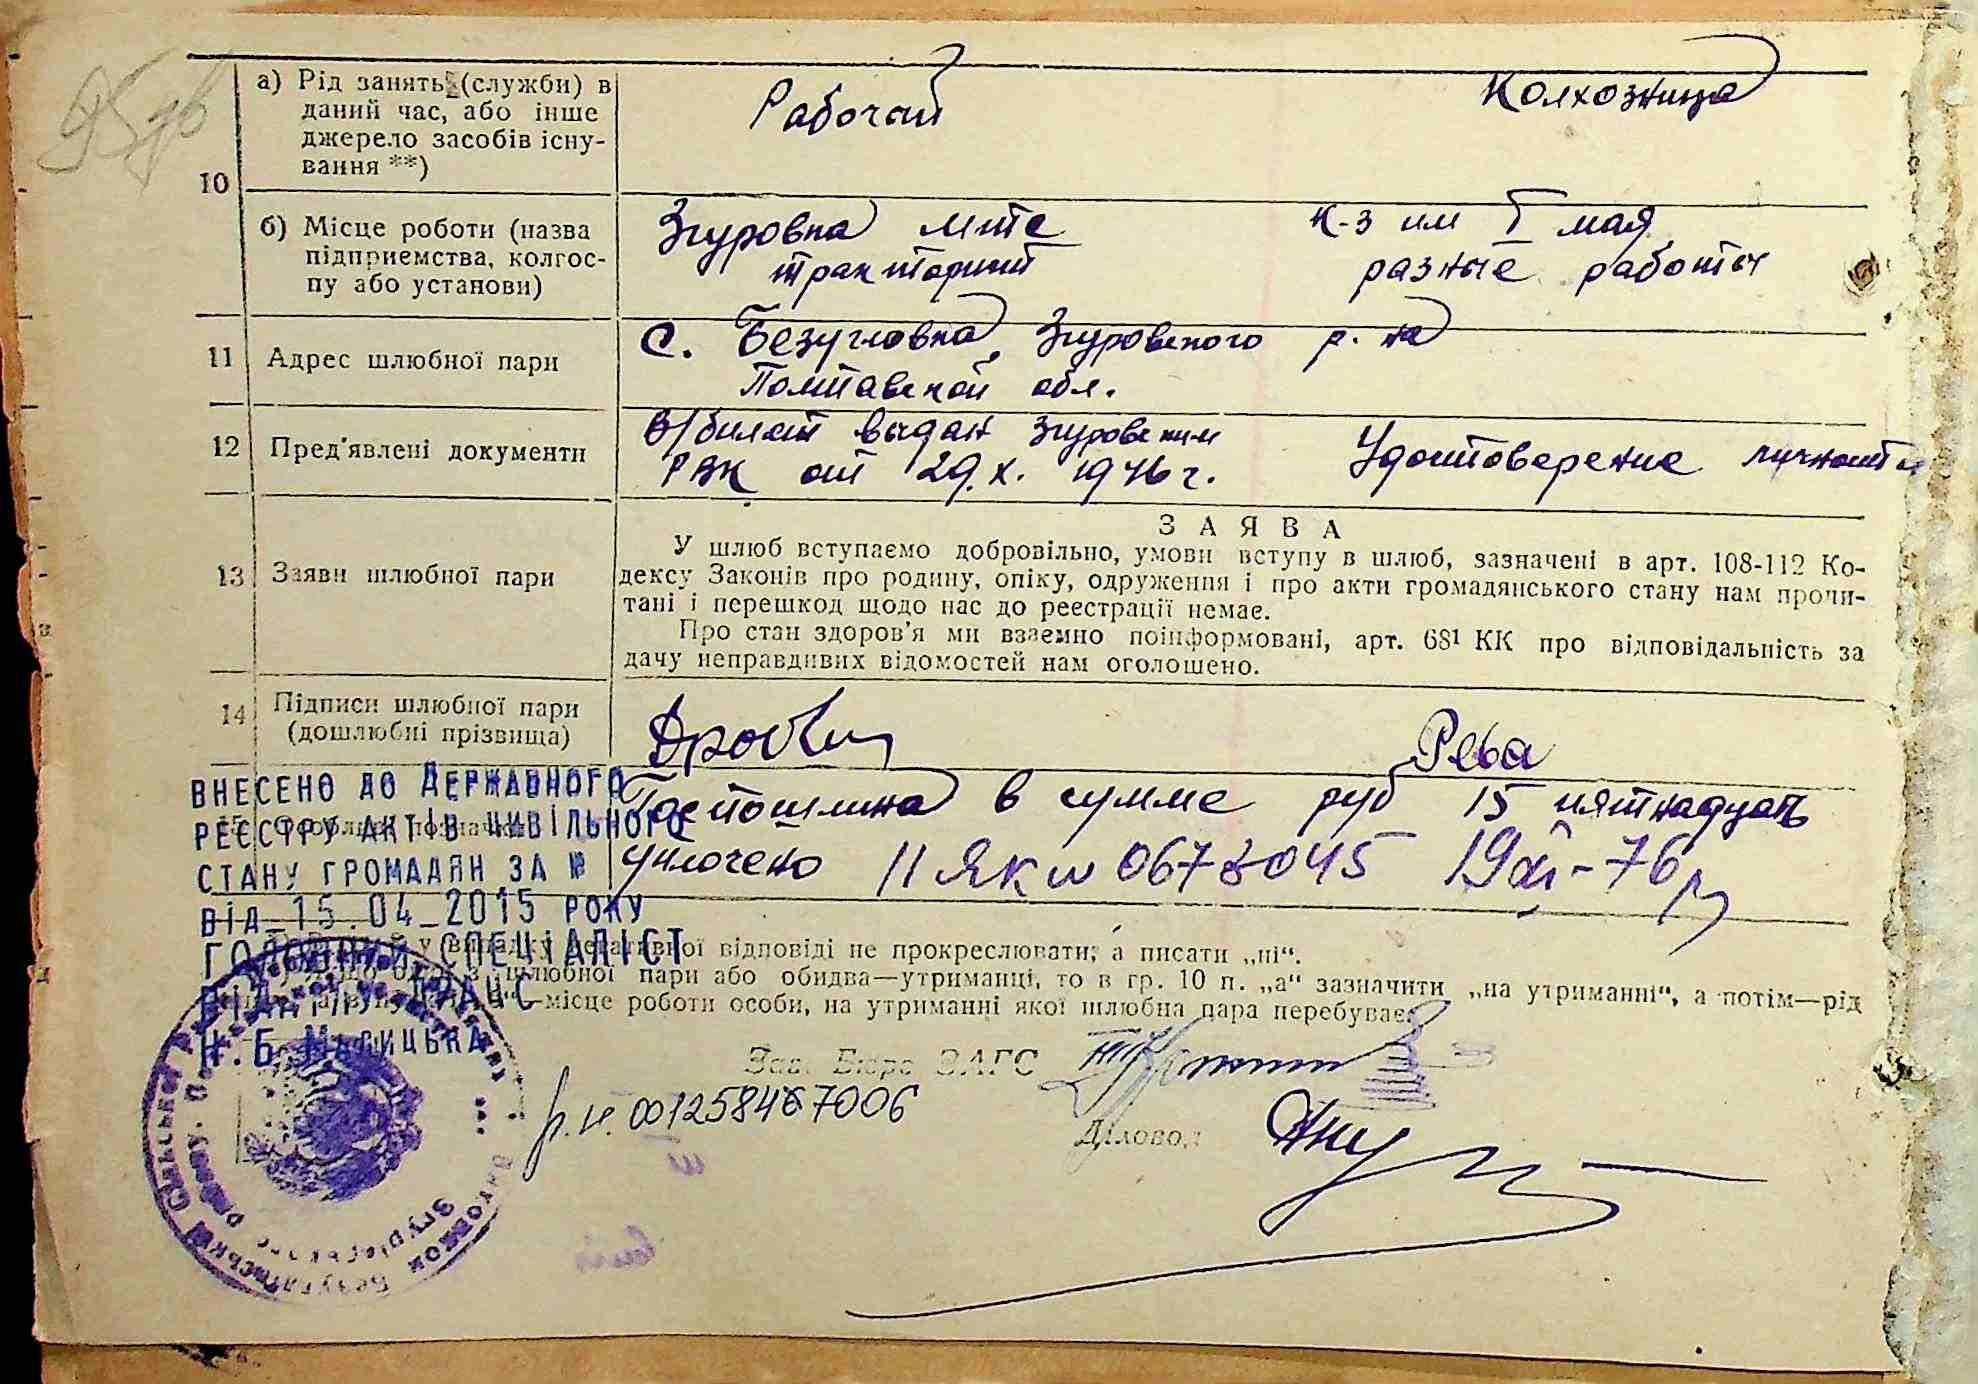 а) Рід занять (служби) в
даний час, або інше
джерело засобів існу-
вання **)
Рабочий
Колхозница
10
б) Місце роботи (назва
підприємства, колгос-
пу або установи)
Згуровка мтс
тракторист
к-з им 1 мая
разные работы
11 Адрес шлюбної пари
С. Безугловка Згуровского р. на
Полтавской обл.
12 Пред'явлені документи
В/билет выдан Згуровским
РВК от 29.X. 1946 г.
Удостоверение личности
13 Заяви шлюбної пари
ЗАЯВА
У шлюб вступаємо добровільно, умови вступу в шлюб, зазначені в арт. 108-112 Ко-
дексу Законів про родину, опіку, одруження і про акти громадянського стану нам прочи-
тані і перешкод щодо нас до реєстрації немає.
Про стан здоров'я ми взаємно поінформовані, арт. 68¹ КК про відповідальність за
дачу неправдивих відомостей нам оголошено.
14 Підписи шлюбної пари
(дошлюбні прізвища)
Рева
Госпошлина в сумме руб 15 пятнадцать
уплочено
ВНЕСЕНО ДО ДЕРЖАВНОГО
РЕЄСТРУ АКТІВ ЦИВІЛЬНОГО
СТАНУ ГРОМАДЯН ЗА №
ВІД 15.04 2015 РОКУ
ГОЛОВНИЙ СПЕЦІАЛІСТ
ВІДДІЛУ ДРАЦС
Н.Б. Масицька
у випадку негативної відповіді не прокреслювати, а писати „ні“.
шлюбної пари або обидва—утриманці, то в гр. 10 п. „а“ зазначити „на утриманні“, а потім—рід
—місце роботи особи, на утриманні якої шлюбна пара перебуває.
Зав. Бюро ЗАГС
р.н. 001258467006
Діловод